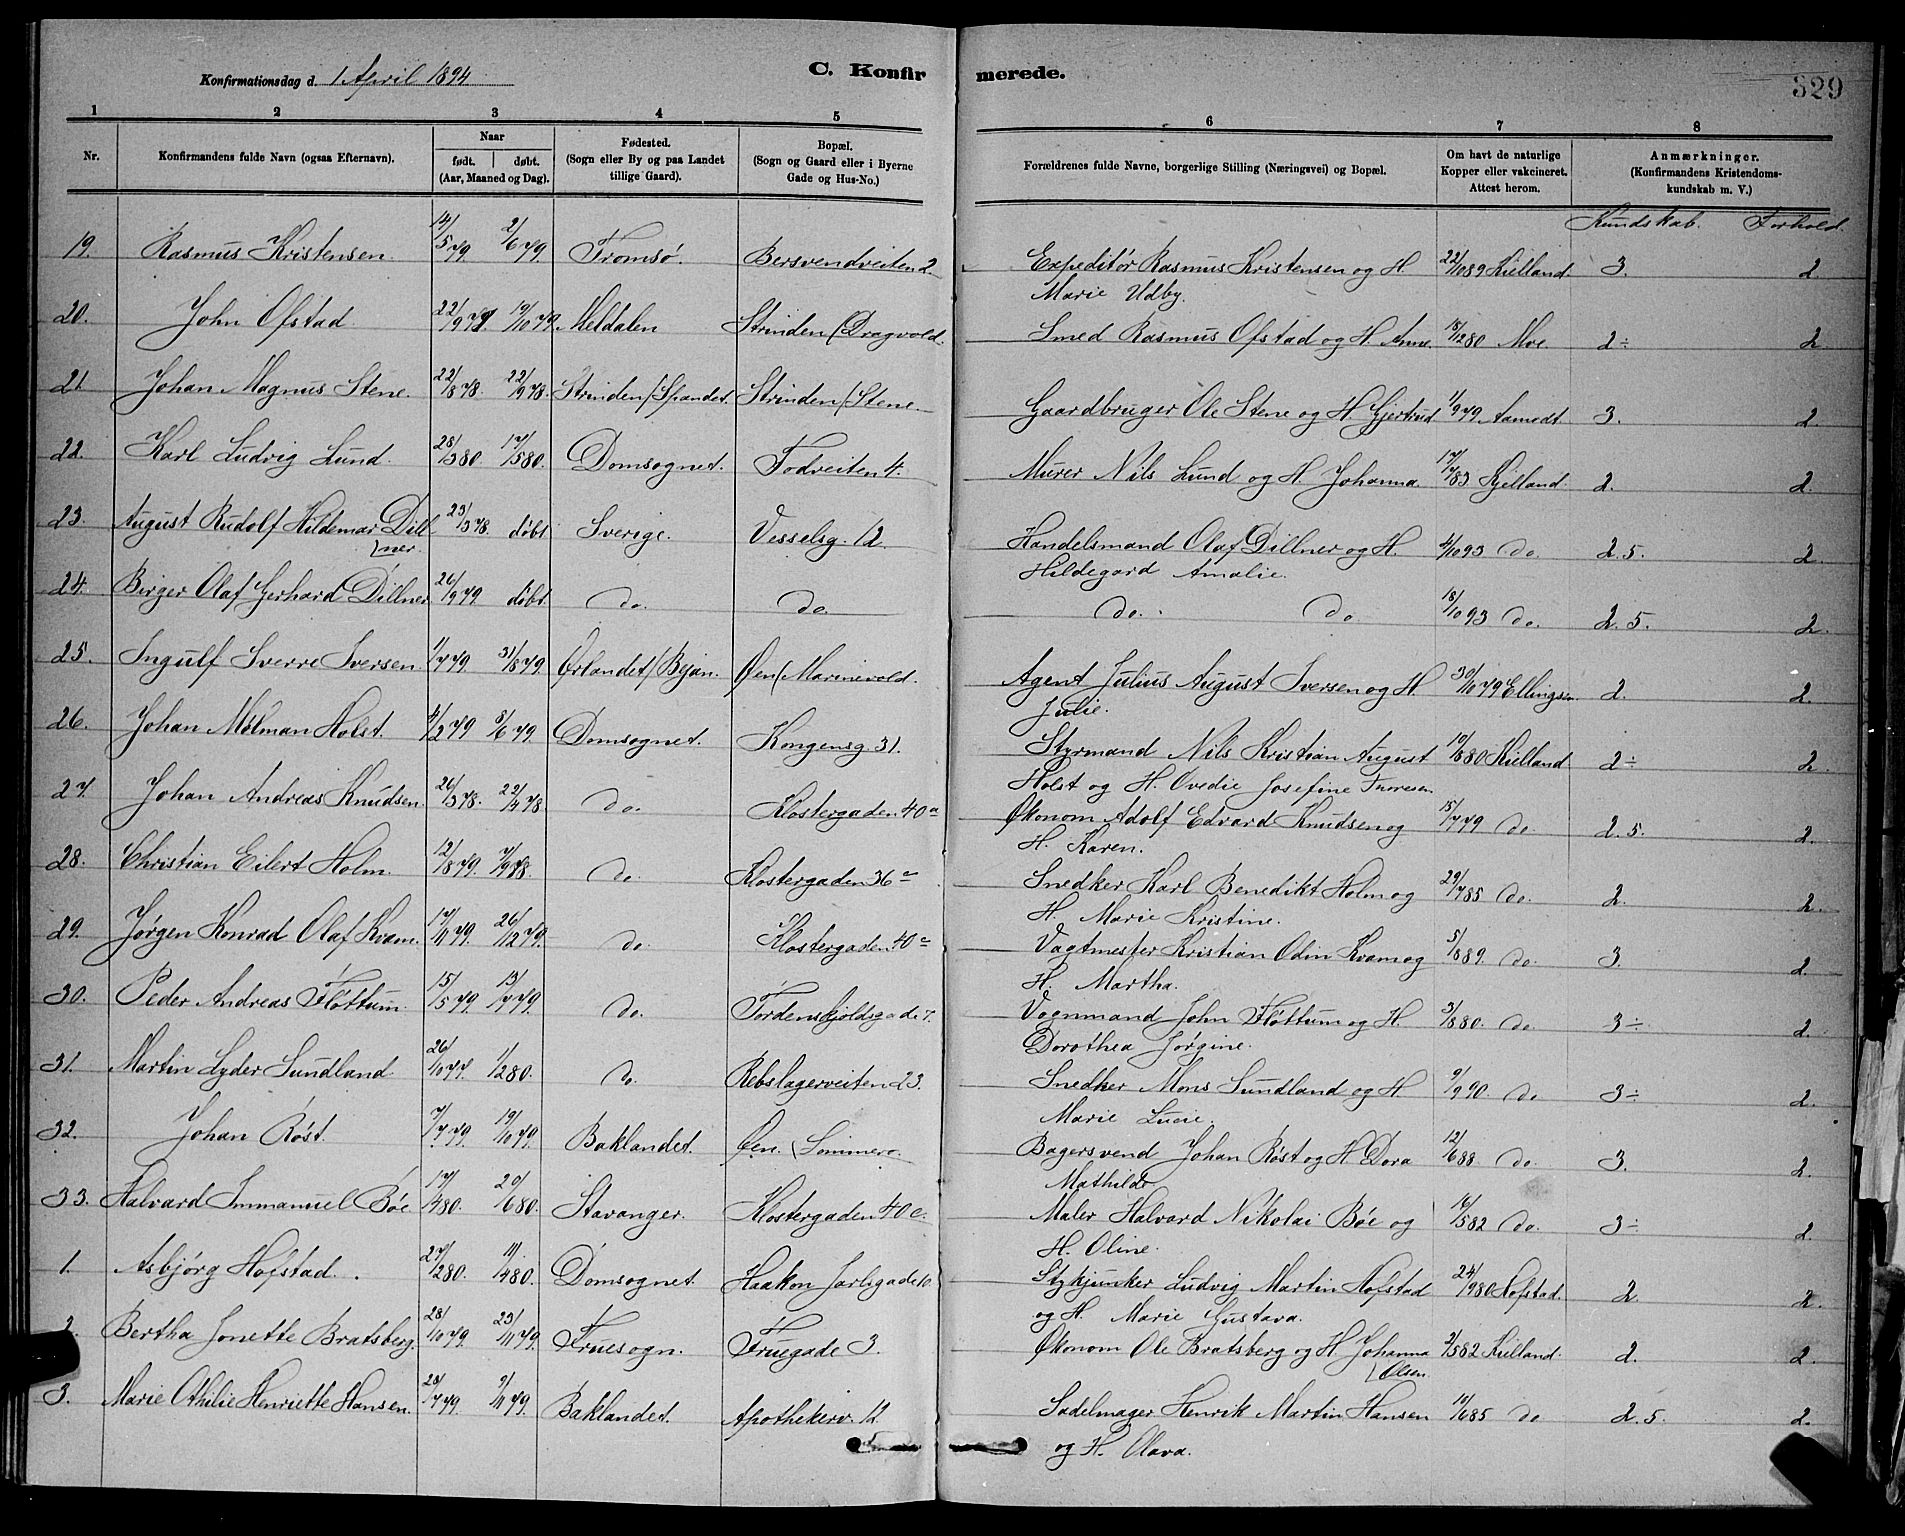 Konfirmationsdag d. 1 April 1894
C. Konfirmerede.
329
1 2 3 4 5 6 7 8
Nr. | Konfirmandens fulde Navn (ogsaa Efternavn). | Naar født. | døbt. (Aar, Maaned og Dag). | Fødested. (Sogn eller By og paa Landet tillige Gaard). | Bopæl. (Sogn og Gaard eller i Byerne Gade og Hus-No.) | Forældrenes fulde Navne, borgerlige Stilling (Næringsvei) og Bopæl. | Om havt de naturlige Kopper eller vakcineret. Attest herom. | Anmærkninger. (Konfirmandens Kristendomskundskab m. V.)
Kundskab. Forhold.
19. Rasmus Kristensen. 14/5 79. 2/6 79. Tromsø. Bersvendveiten 2 Expeditør Rasmus Kristensen og H. 22/10 89 Kielland. 3. 2.
Marie Udby.
20. John Ofstad. 22/9 79 19/10 79. Meldalen Strinden (Dragvold. Smed Rasmus Ofstad og H. Anne. 18/12 80 Moe. 2÷ 2
21 Johan Magnus Stene. 22/8 78. 22/9 78. Strinden/Spandet. Strinden/Stene. Gaardbruger Ole Stene og H. Gjertrud 1/9 79 Aamodt. 3. 2.
22. Karl Ludvig Lund. 28/3 80. 17/5 80. Domsognet. Fodveiten 4. Murer Nils Lund og H. Johanna. 17/7 83 Kjelland. 2. 2.
23. August Rudolf Hildemar Dill- 23/3 78. døbt Sverige. Vesselsg. 12. Handelsmand Olaf Dillner og H. 4/10 93 do. 2.5. 2.
ner. Hildegard Amalie.
24. Birger Olaf Gerhard Dillner. 26/9 79. døbt do. do. do. do. 18/10 93 do. 2.5. 2.
25. Ingulf Sverre Iversen. 1/7 79. 31/8 79. Ørlandet/Bejan. Øen (Marinevold. Agent Julius August Iversen og H. 30/11 79 Ellingsen 2. 2.
Julie.
26. Johan Milman Holst. 4/2 79 8/6 79. Domsognet. Kongensg. 31. Styrmand Nils Kristian August 10/8 80 Kielland 2÷ 2.
Holst og H. Ovedie Josefine Thoresen
27. Johan Andreas Knudsen. 26/3 78. 22/4 78. do. Klostergaden 40 a Økonom Adolf Edvard Knudsen og 15/7 79 do 2.5. 2.
H. Karen.
28. Christian Eilert Holm. 12/8 79. 7/9 78. do. Klostergaden 36 a Snedker Karl Benedikt Holm og 29/7 85 do. 2. 2.
H. Marie Kristine.
29. Jørgen Konrad Olaf Kvam. 17/11 79. 26/12 79. do. Klostergaden 40 a Vagtmester Kristian Odin Kvam og 5/8 89. do. 3. 2.
H. Martha.
30. Peder Andreas Fløttum. 15/5 79. 13/7 79. do. Tordenskjoldsgade 7. Vognmand John Fløttum og H. 3/8 80. do 3÷ 2.
Dorothea Jørgine.
31. Martin Lyder Sundland. 26/10 77. 1/2 80. do. Rebslagerveiten 23. Snedker Mons Sundland og H 9/9 90. do 3÷ 2.
Marie Lucie.
32. Johan Røst. 7/7 79. 19/10 79. Baklandet. Øen. (Sommero. Bagersvend Johan Røst og H Dora 12/6 88 do. 3. 2.
Mathilde.
33. Halvard Immanuel Bøe 17/4 80. 20/6 80. Stavanger. Klostergaden 40 c. Maler Halvard Nikolai Bøe og 16/5 82 do. 3÷ 2.
H. Oline.
1. Asbjørg Hofstad. 27/2 80. 11/4 80. Domsognet. Haakon Jarlsgade 10. Stykjunker Ludvig Martin Hofstad 24/9 80 Hofstad. 2. 2.
og H. Marie Gustava.
2. Bertha Jonette Bratsberg. 28/10 79. 23/11 79. Fruesogn. Fruegade 3. Økonom Ole Bratsberg og H. Johanna 2/5 82 Kielland. 2. 2.
Olsen.
3. Marie Othilie Henriette Hansen. 28/7 79. 9/11 79. Baklandet. Apothekerv. 12 Sadelmager Henrik Martin Hansen 10/6 85 do 2.5. 2.
og H. Olava.